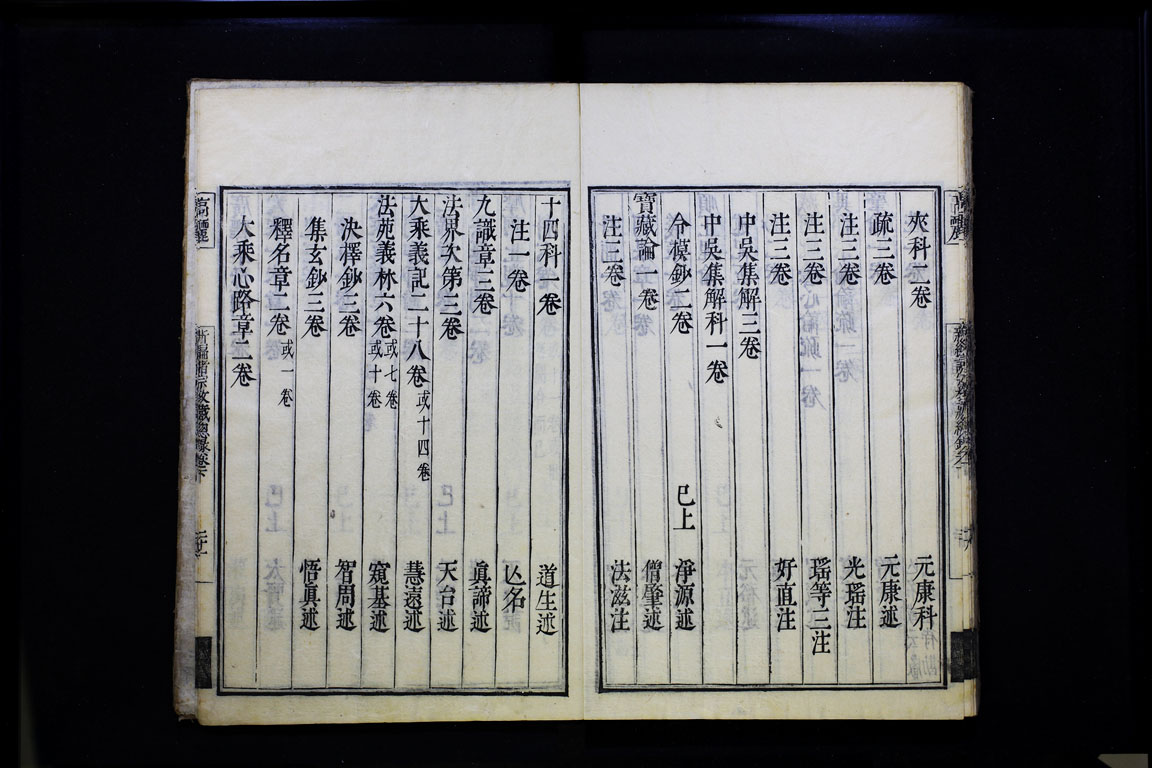 夾科二卷 元康科
疏三卷 元康述
注三卷 光瑤注
注三卷 瑤等三注
注三卷 好直注
中吳集解三卷
中吳集解科一卷
令模鈔二卷 已上 淨源述
寶藏論一卷 僧肇述
注三卷 法滋注
十四科一卷 道生述
注一卷 亡名
九識章三卷 眞諦述
法界次第三卷 天台述
大乘義記二十八卷 或十四卷 慧遠述
法苑義林六卷 或七卷 或十卷 窺基述
決擇鈔三卷 智周述
集玄鈔三卷 悟眞述
釋名章二卷 或一卷
大乘心路章二卷
高麗
新編諸宗教藏總錄卷下